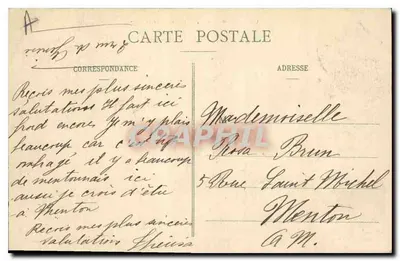 A
CARTE POSTALE
CORRESPONDANCE
ADRESSE
Reçois mes plus sincères
salutations Il fait ici
froid encore. Je m'y plais
beaucoup car c'est
il y a beaucoup
de mentonnais ici
aussi je crois d'être
à Menton
Reçois mes plus sincères
salutations
Mademoiselle
Rosa Brun
5 Rue Saint Michel
Menton
A.M.